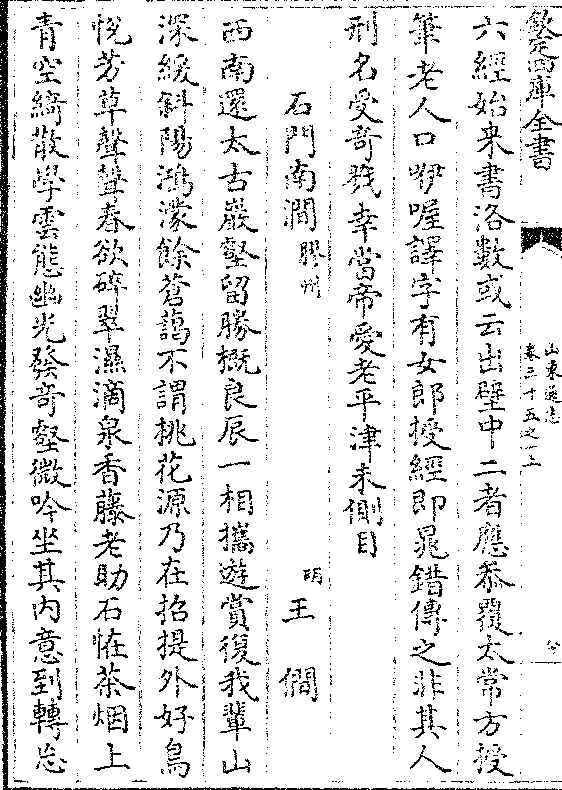 欽定四庫全書
山東通志
卷三十五之一上
六經始来書洛數或云出壁中二者應叅覆太常方授
筆老人口咿喔譯字有女郎授經即晁錯傳之非其人
刑名受奇戮幸當帝愛老平津未側目
石門南澗膠州　明王僩
西南還太古巖壑留勝概良辰一相攜遊賞復我輩山
深緩斜陽鴻濛餘蒼藹不謂桃花源乃在招提外好鳥
悅芳草聲聲春欲碎翠濕滴泉香藤老助石怪茶烟上
青空綺散學雲態幽光發奇壑微吟坐其内意到轉忘